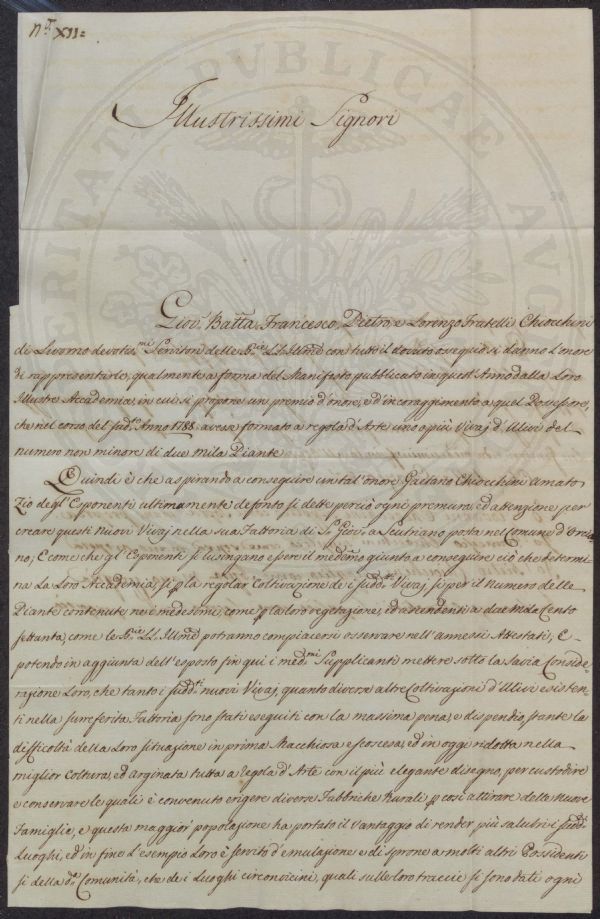 N.º XII=
PROSPERITATI PUBLICAE AUGENDAE
Illustrissimi Signori
Giov. Batta, Francesco, Pietro, e Lorenzo Fratelli Chiocchini
di Livorno devotis.mi Servitori delle S.rie LL. Illme con tutto il dovuto ossequio si danno l'onore
di rappresentarle, qualmente a forma del Manifesto pubblicato in quest'Anno dalla Loro
Illustre Accademia, in cui si propone un premio d'onore, ed'incoraggimento a quel Possessore,
che nel corso del sud.º Anno 1788. avesse formato a regola d'Arte uno, o più Vivaj d'Ulivi del
numero non minore di due mila Piante
Quindi è che aspirando a conseguire un tal'onore Gaetano Chiocchini amato
Zio degl'Esponenti ultimamente defonto si dette perciò ogni premura, ed attenzione per
creare questi nuovi Vivaj nella sua Fattoria di S. Gio: a Scutriano posta nel Comune d'Orcia
no, E come che gl'Esponenti si lusingano essere il medemo giunto a conseguire ciò che determi
na la Loro Accademia, sì p la regolar Coltivazione de i sudd.i Vivaj, sì per il Numero delle
Piante contenute ne i medesimi, come p la loro vegetazione, ed ascendenti a due Mila Cento
settanta, come le S.rie LL. Illme potranno compiacersi osservare nell'annessi Attestati; E
potendo in aggiunta dell'esposto fin qui i med.mi Supplicanti mettere sotto la Savia Conside=
razione Loro, che tanto i sudd.ti nuovi Vivaj, quanto diverse altre Coltivazioni d'Ulivi esisten
ti nella surreferita Fattoria sono stati eseguiti con la massima pena, e dispendio stante la
difficoltà della Loro situazione in prima Macchiosa e scoscesa, ed in oggi ridotta nella
miglior Coltura, ed arginata tutta a regola d'Arte con il più elegante disegno, per custodire
e conservare le quali è convenuto erigere diverse Fabbriche Rurali p così attirare delle nuove
Famiglie, e questa maggior popolazione ha portato il Vantaggio di render più salubri i sudd.i
Luoghi, ed in fine l'esempio Loro è servito d'emulazione e di sprone a molti altri Possidenti
sì della d.ª Comunità, che de i Luoghi circonvicini, quali sulle loro traccie si sono dati ogni